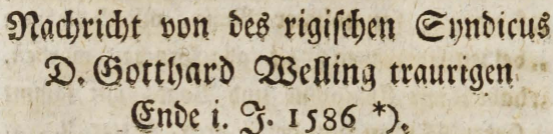 Nachricht von des rigischen Syndicus
D. Gotthard Welling traurigen
Ende i. J. 1586 *).